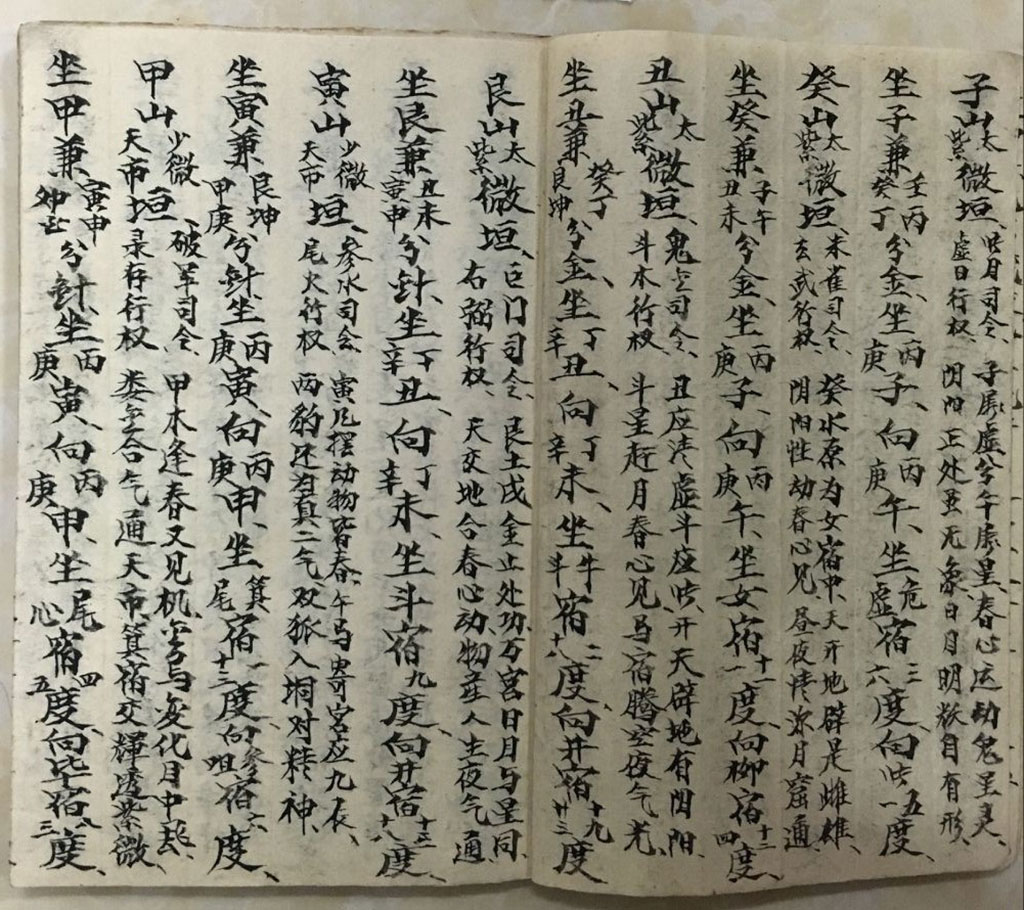 子山太紫微垣、月司令、虚日行权、子虚兮午星、春心运动鬼呈灵、阴阳正处虽无象日月明然自有形、
坐子兼壬丙癸丁兮金、坐丙庚子、向丙庚午、坐危虚宿三六度、向五一度、
癸山太紫微垣、朱雀司令、玄武行权、癸水原为女宿中、天开地辟是雌雄、阴阳性动春心见、昼夜情浓月窟通
坐癸兼子午丑未兮金、坐丙庚子、向丙庚午、坐女宿十一一度、向柳宿十三四度、
丑山太紫微垣、鬼金司令、斗木行权、丑应虚斗应、开天辟地有阴阳、斗星赶月春心见、马宿腾空夜气光、
坐丑兼癸丁艮坤兮金、坐丁辛丑、向丁辛未、坐牛斗宿二十八度、向井宿十九廿三度、
艮山太紫微垣、巨门司令、右弼行权、艮土戌金止处功、万宫日月与星同、天交地合春心动、物产人生夜气通
坐艮兼丑未寅申兮针、坐丁辛丑、向丁辛未、坐斗宿九度、向井宿十三十八度、
寅山少微天市垣、参水司令、尾火行权、寅凡摆动物皆春、午马寄宫应九辰、两豹还为真二气、双狐入垌对精神、
坐寅兼艮坤甲庚兮针、坐丙庚寅、向丙庚申、坐箕尾宿一十三度、向参咀宿六度、
甲山少微天市垣、破军司令、录存行权、甲木逢春又见机、金与变化月中、娄金合气通天市、箕宿交辉透紫微
坐甲兼寅申卯酉兮针、坐丙庚寅、向丙庚申、坐尾心宿四五度、向毕宿八三度、